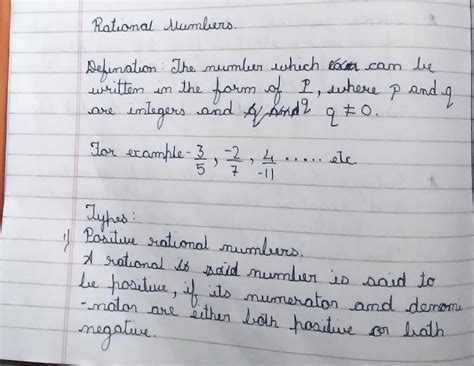 Rational Numbers.
Defination: The number which can be
written in the form of p/q, where p and q
are integers and q ≠ 0.
For example - 3/5, -2/7, 4/-11 ..... etc.
Types:
1) Positive rational numbers.
A rational is said number is said to
be positive, if its numerator and denomi
-nator are either both positive or both
negative.